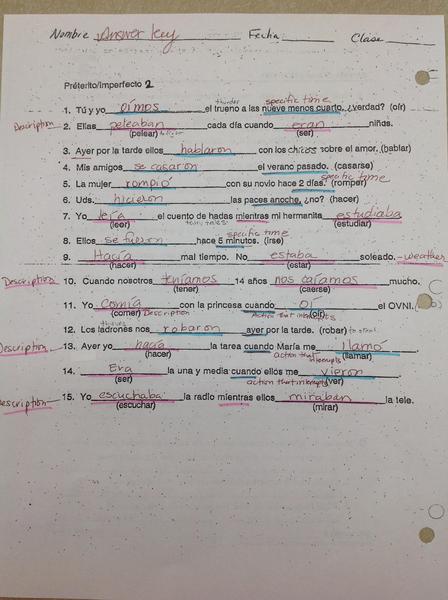 Nombre Answer key Fecha Clase
Préterito/Imperfecto 2
thunder specific time
1. Tú y yo oímos el trueno a las nueve menos cuarto, ¿verdad? (oír)
Description 2. Ellas peleaban cada día cuando eran niñas.
(pelear) (ser)
3. Ayer por la tarde ellos hablaron con los chicos sobre el amor. (hablar)
4. Mis amigos se casaron el verano pasado. (casarse)
specific time
5. La mujer rompió con su novio hace 2 días. (romper)
6. Uds. hicieron las paces anoche, ¿no? (hacer)
7. Yo leía el cuento de hadas mientras mi hermanita estudiaba
(leer) (estudiar)
specific time
8. Ellos se fueron hace 5 minutos. (irse)
9. Hacía mal tiempo. No estaba soleado. - weather
(hacer) (estar)
Description 10. Cuando nosotros teníamos 14 años nos caíamos mucho.
(tener) (caerse)
11. Yo comía con la princesa cuando oí el OVNI.
(comer) Description Action that interrupts (oír)
12. Los ladrones nos robaron ayer por la tarde. (robar) to steal
Description 13. Ayer yo hacía la tarea cuando María me llamó
(hacer) action that interrupts (llamar)
14. Era la una y media cuando ellos me vieron
(ser) action that interrupts (ver)
Description 15. Yo escuchaba la radio mientras ellos miraban la tele.
(escuchar) (mirar)